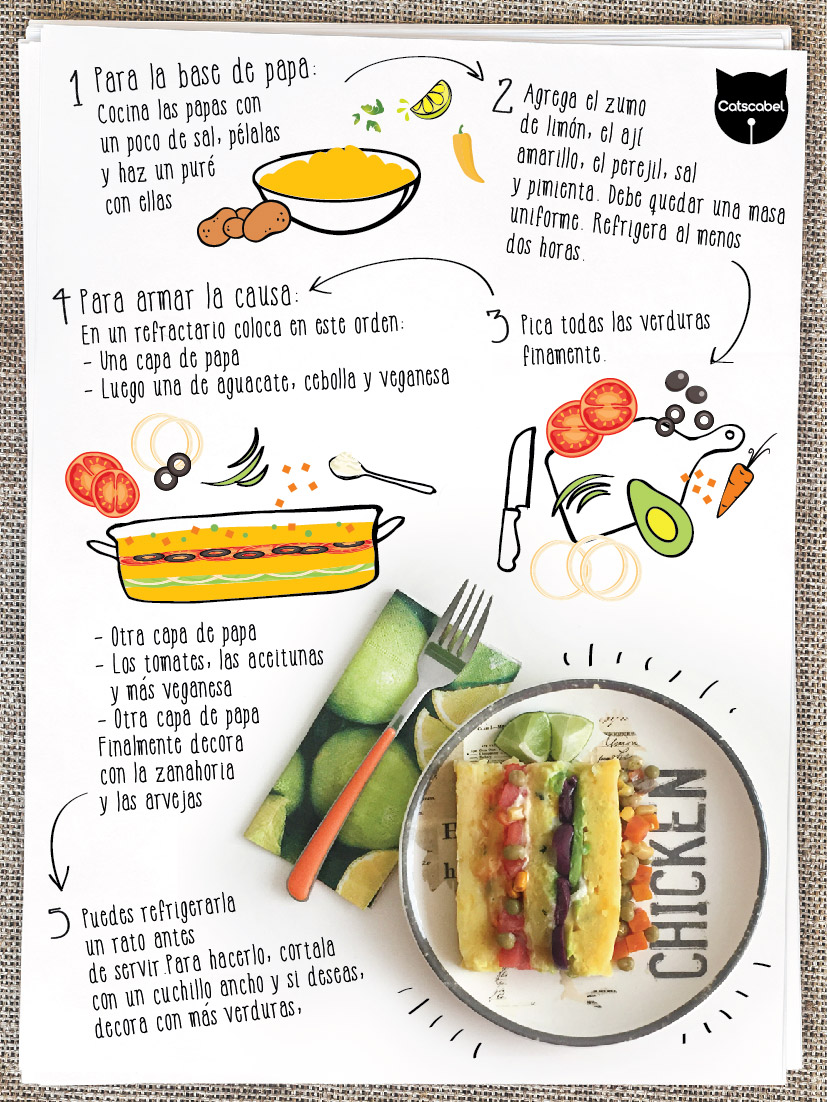 1 Para la base de papa:
Cocina las papas con
un poco de sal, pélalas
y haz un puré
con ellas
2 Agrega el zumo
de limón, el ají
amarillo, el perejil, sal
y pimienta. Debe quedar una masa
uniforme. Refrigera al menos
dos horas.
Catscabel
3 Pica todas las verduras
finamente.
4 Para armar la causa:
En un refractario coloca en este orden:
- Una capa de papa
- Luego una de aguacate, cebolla y veganesa
- Otra capa de papa
- Los tomates, las aceitunas
y más veganesa
- Otra capa de papa
Finalmente decora
con la zanahoria
y las arvejas
5 Puedes refrigerarla
un rato antes
de servir.Para hacerlo, cortala
con un cuchillo ancho y si deseas,
decora con más verduras,
CHICKEN